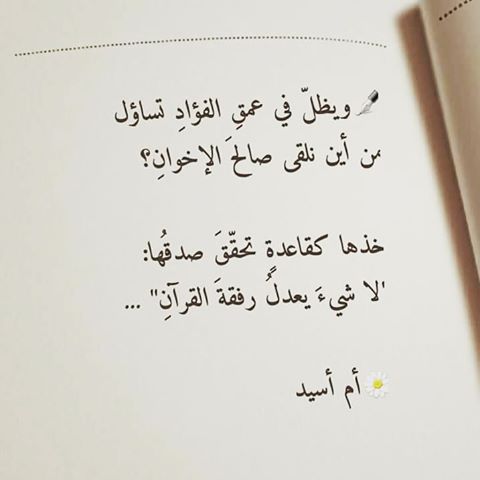 ويظلّ في عمقِ الفؤادِ تساؤل
من أين نلقى صالحَ الإخوانِ؟
خذها كقاعدةٍ تحقّقَ صدقُها:
"لا شيءَ يعدلُ رفقةَ القرآنِ" ...
أم أسيد